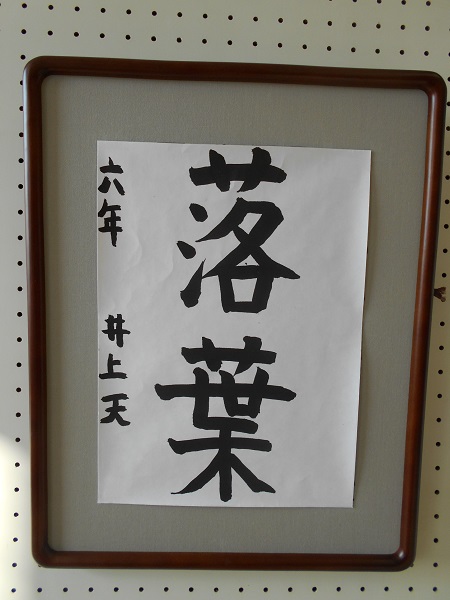 落葉
六年 井上天